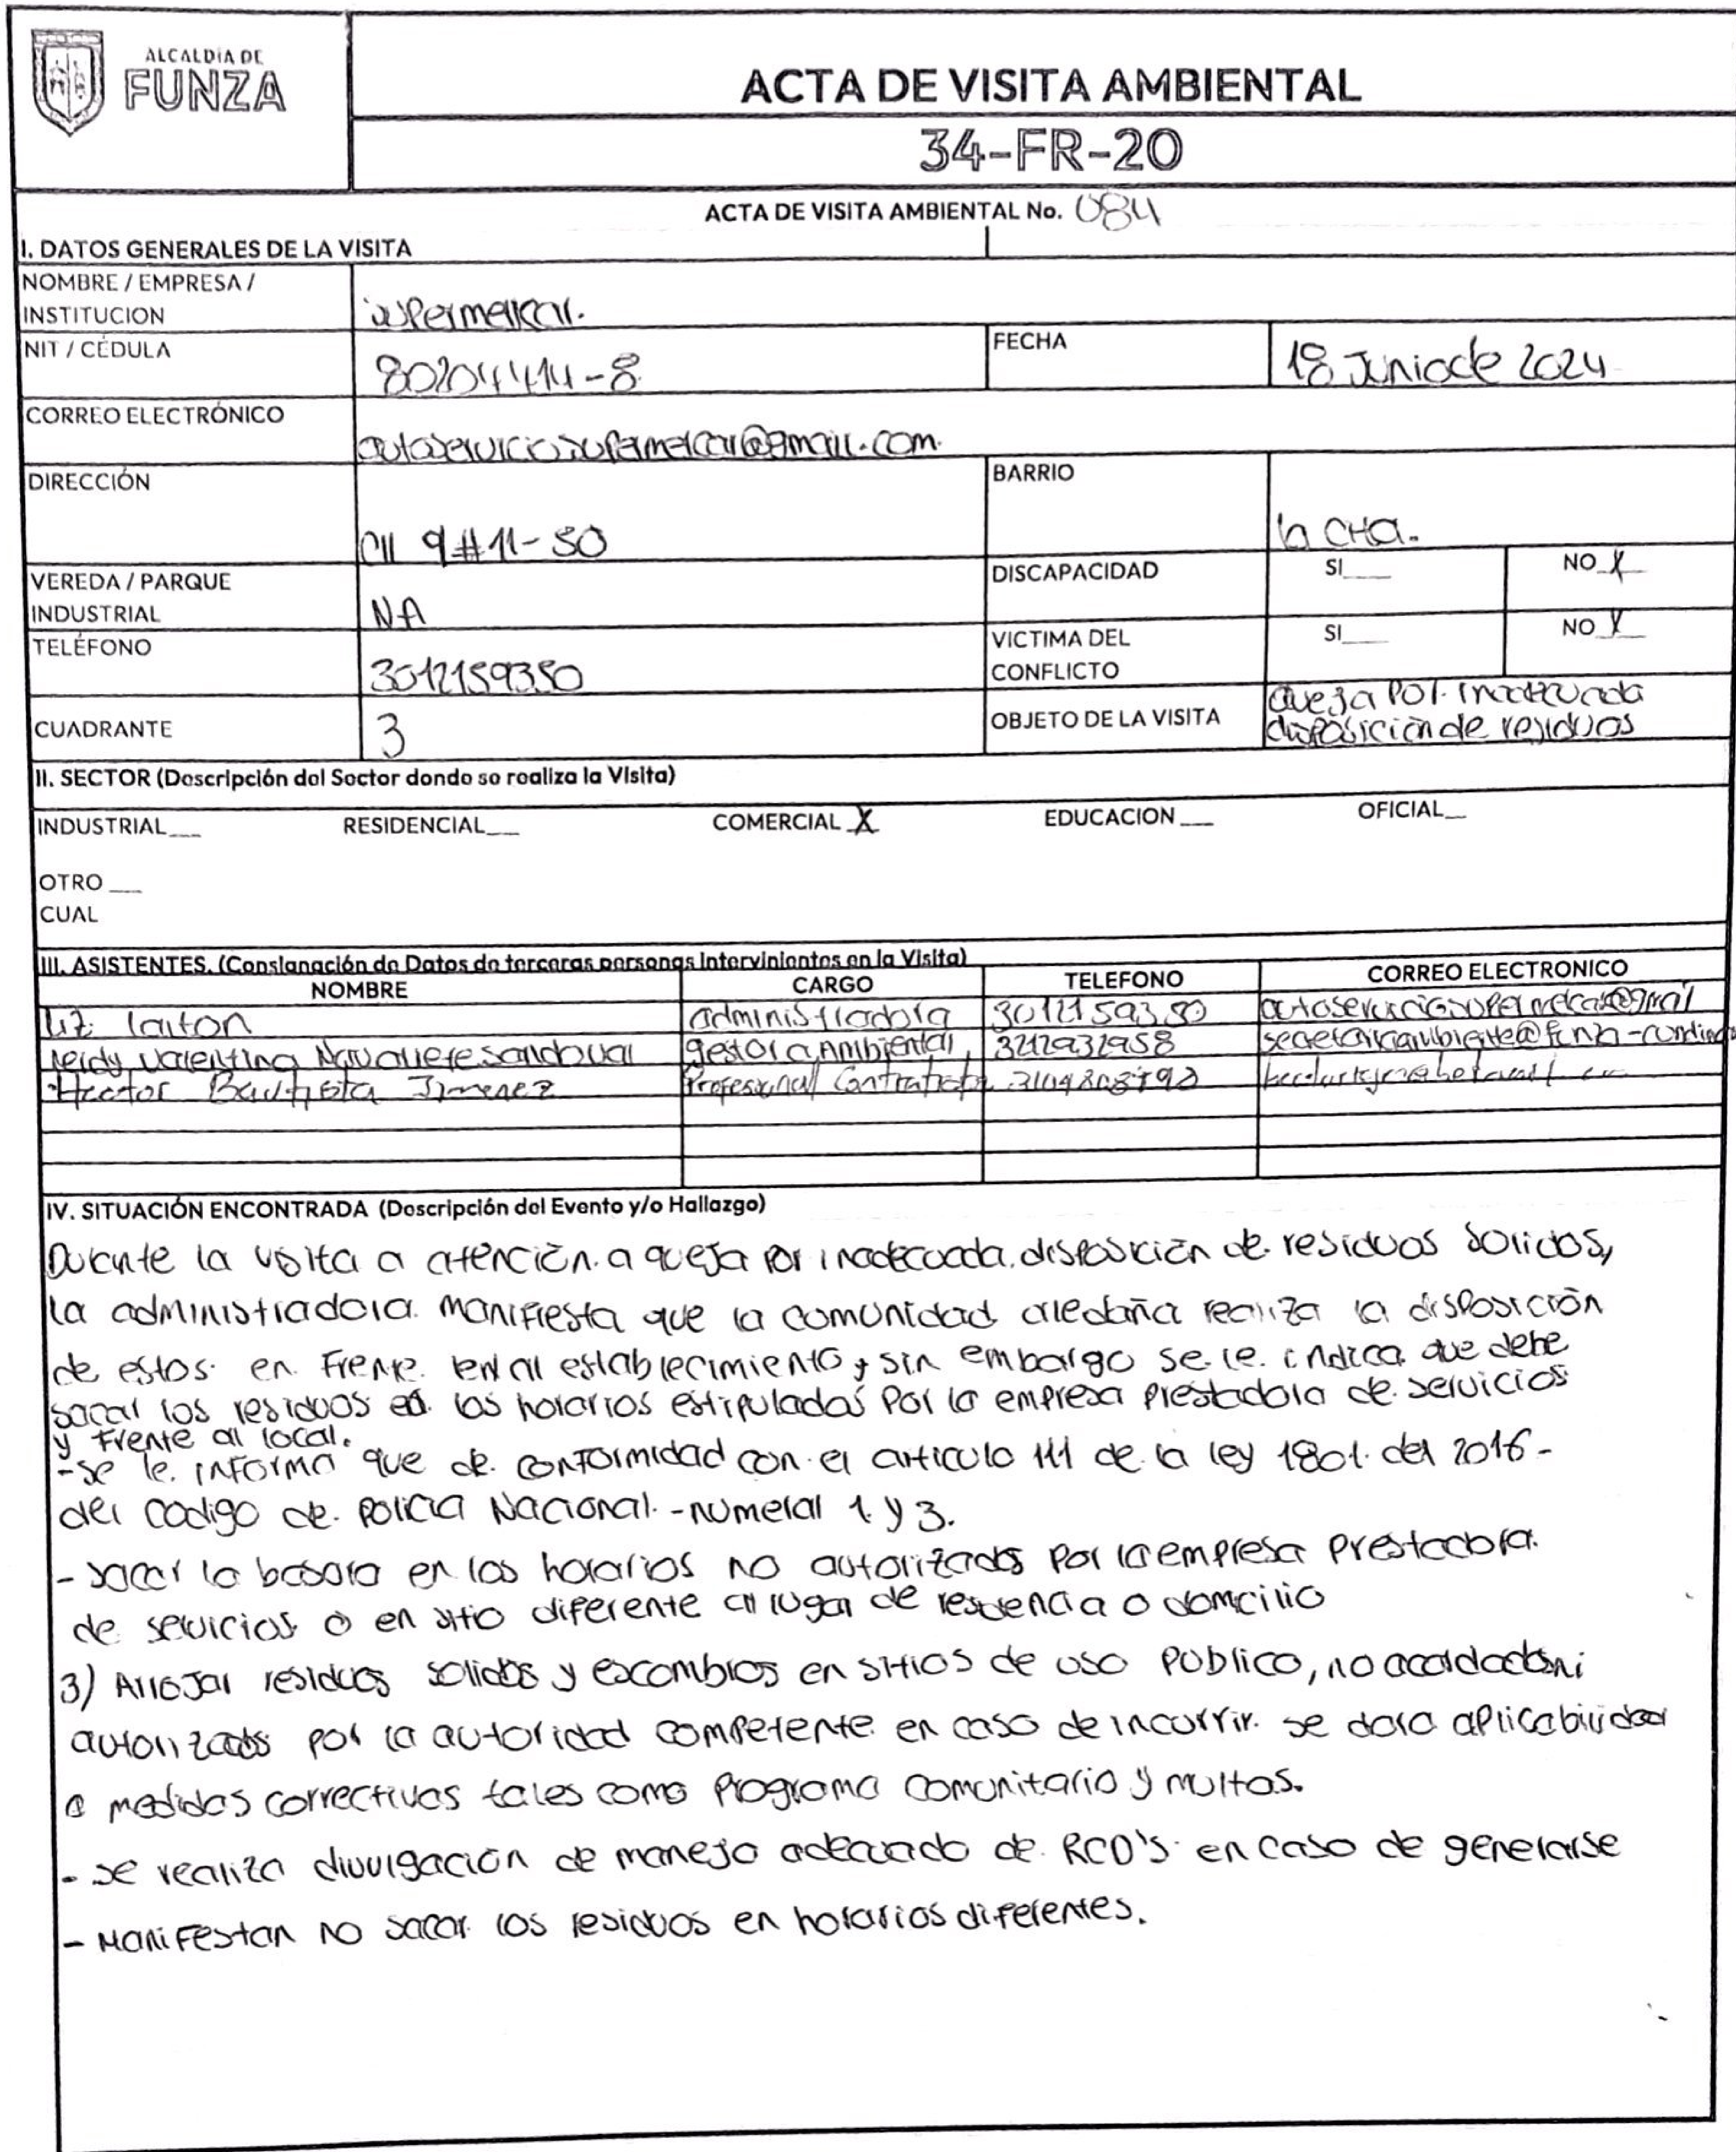 ALCALDÍA DE
FUNZA
ACTA DE VISITA AMBIENTAL
34-FR-20
ACTA DE VISITA AMBIENTAL No. 084
I. DATOS GENERALES DE LA VISITA
NOMBRE / EMPRESA /
INSTITUCION
supermercar.
NIT / CÉDULA
FECHA
18 Junio de 2024
CORREO ELECTRÓNICO
autoserviciosupermercar@gmail.com.
DIRECCIÓN
Cll 9 # 11-50
BARRIO
la
VEREDA / PARQUE
INDUSTRIAL
NA
DISCAPACIDAD
SI___
NO X
TELÉFONO
3012159350
VICTIMA DEL
CONFLICTO
SI___
NO X
CUADRANTE
3
OBJETO DE LA VISITA
queja por inadecuada
disposición de residuos
II. SECTOR (Descripción del Sector donde se realiza la Visita)
INDUSTRIAL___ RESIDENCIAL___ COMERCIAL X EDUCACION___ OFICIAL___
OTRO___
CUAL
III. ASISTENTES. (Consignación de Datos de terceras personas Intervinientes en la Visita)
NOMBRE CARGO TELEFONO CORREO ELECTRONICO
Luz laiton administradora 3012159350 autoserviciosupermercar@gmail
leidy Valentina Navarrete sandoval gestora Ambiental 3212932958
Hector Bautista Jimenez Profesional Contratista
IV. SITUACIÓN ENCONTRADA (Descripción del Evento y/o Hallazgo)
Durante la visita a atención a queja por inadecuada disposición de residuos solidos,
la administradora manifiesta que la comunidad aledaña realiza la disposición
de estos en frente al establecimiento, sin embargo se le indica que debe
sacar los residuos en los horarios estipulados por la empresa prestadora de servicios
y frente al local.
-se le informa que de conformidad con el articulo 111 de la ley 1801 del 2016-
del codigo de policia Nacional.-numeral 1 y 3.
- sacar la basara en los horarios no autorizados por la empresa prestadora
de servicios o en sitio diferente al lugar de residencia o domicilio
3) Arrojar residuos solidos y escombros en sitios de uso publico, no acordados ni
autorizados por la autoridad competente en caso de incurrir se dara aplicabilidad
a medidas correctivas tales como programa comunitario y multas.
- se realiza divulgación de manejo adecuado de RCD's en caso de generarse
- Manifestan no sacar los residuos en horarios diferentes.